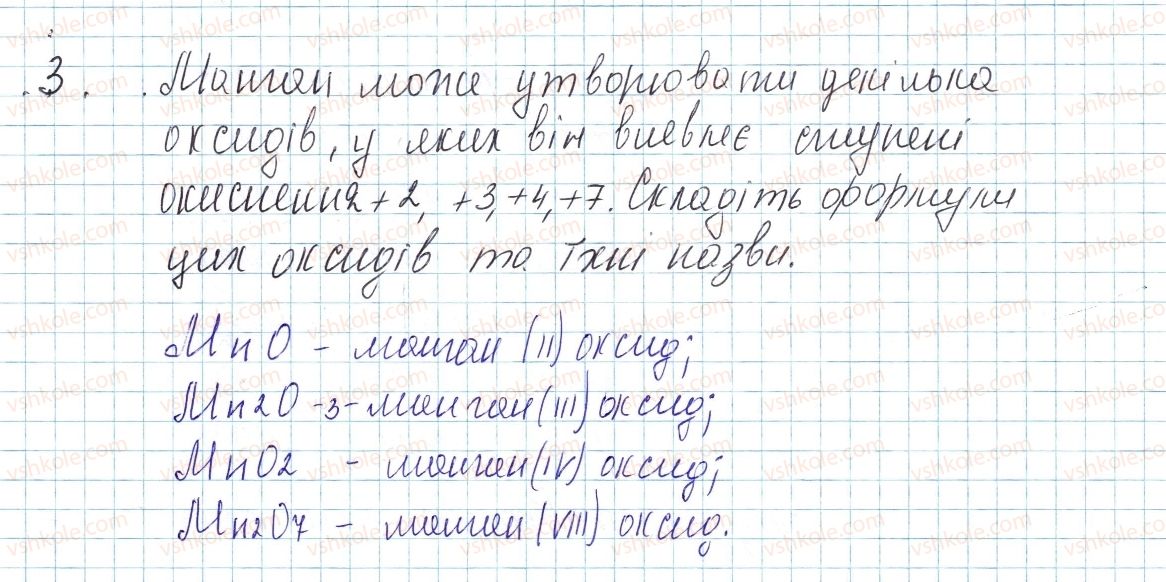 3. Манган може утворювати декілька
оксидів, у яких він виевляє ступені
окиснення +2, +3, +4, +7. Складіть формули
цих оксидів та їхні назви.
MnO - манган (II) оксид;
Mn2O-3-манган (III) оксид;
MnO2 - манган (IV) оксид;
Mn2O7 - манган (VIII) оксид.